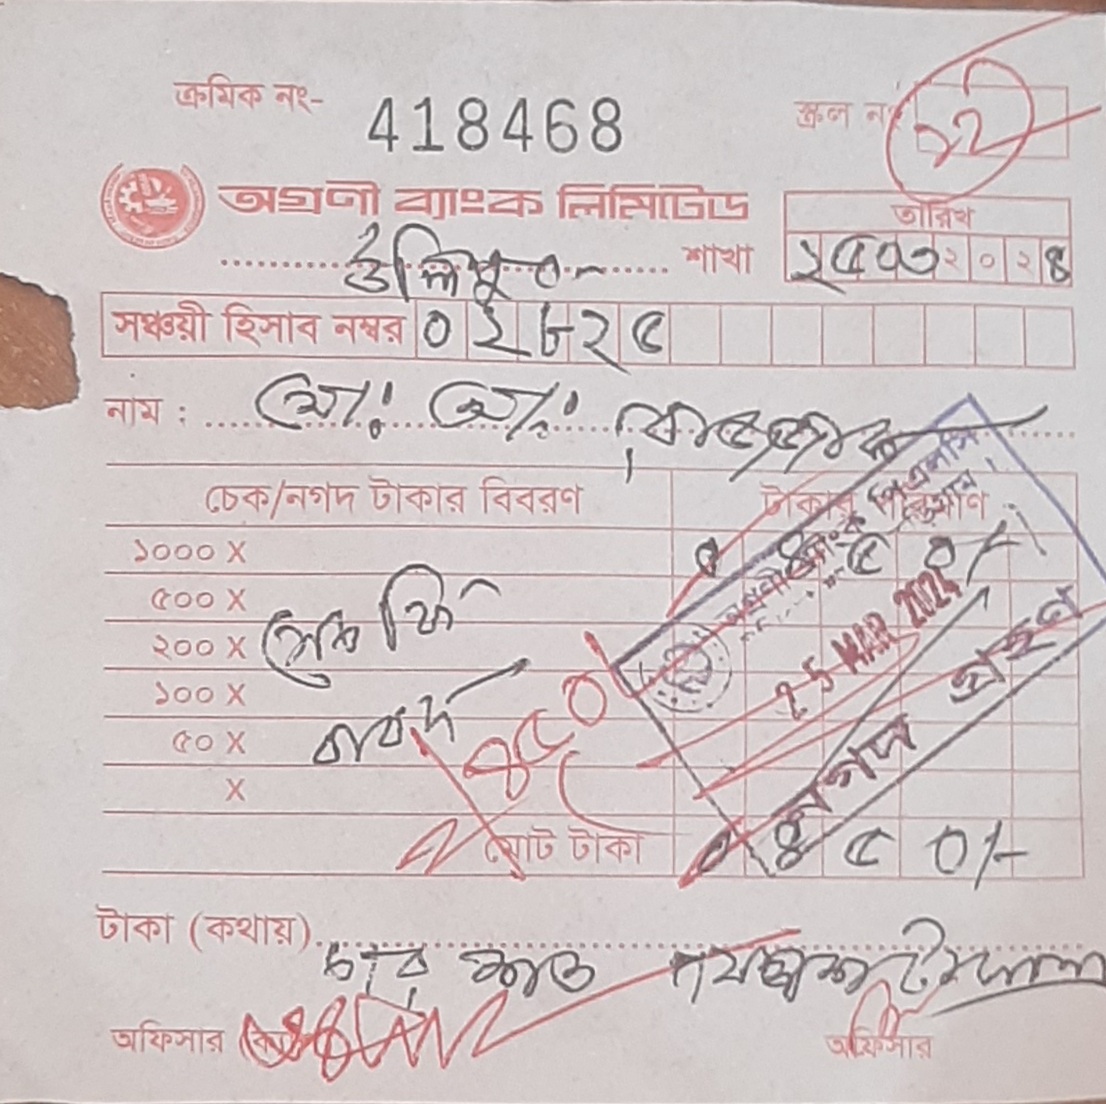 ক্রমিক নং- 418468
স্ক্রল নং ১২
অগ্রণী ব্যাংক লিমিটেড
তারিখ
উলিপুর শাখা
২৫০৩২০২৪
সঞ্চয়ী হিসাব নম্বর ০২৮২৫
নাম : মো: মো:
চেক/নগদ টাকার বিবরণ টাকার পরিমাণ
১০০০ X ৪৫০/-
৫০০ X
২০০ X
১০০ X
৫০ X
X
ফি
বাবদ
৪৫০
পিএলসি
25 MAR 2024
নগদ গ্রহণ
মোট টাকা ৪৫০/-
টাকা (কথায়)
চার শত পঞ্চাশ টাকা
অফিসার অফিসার